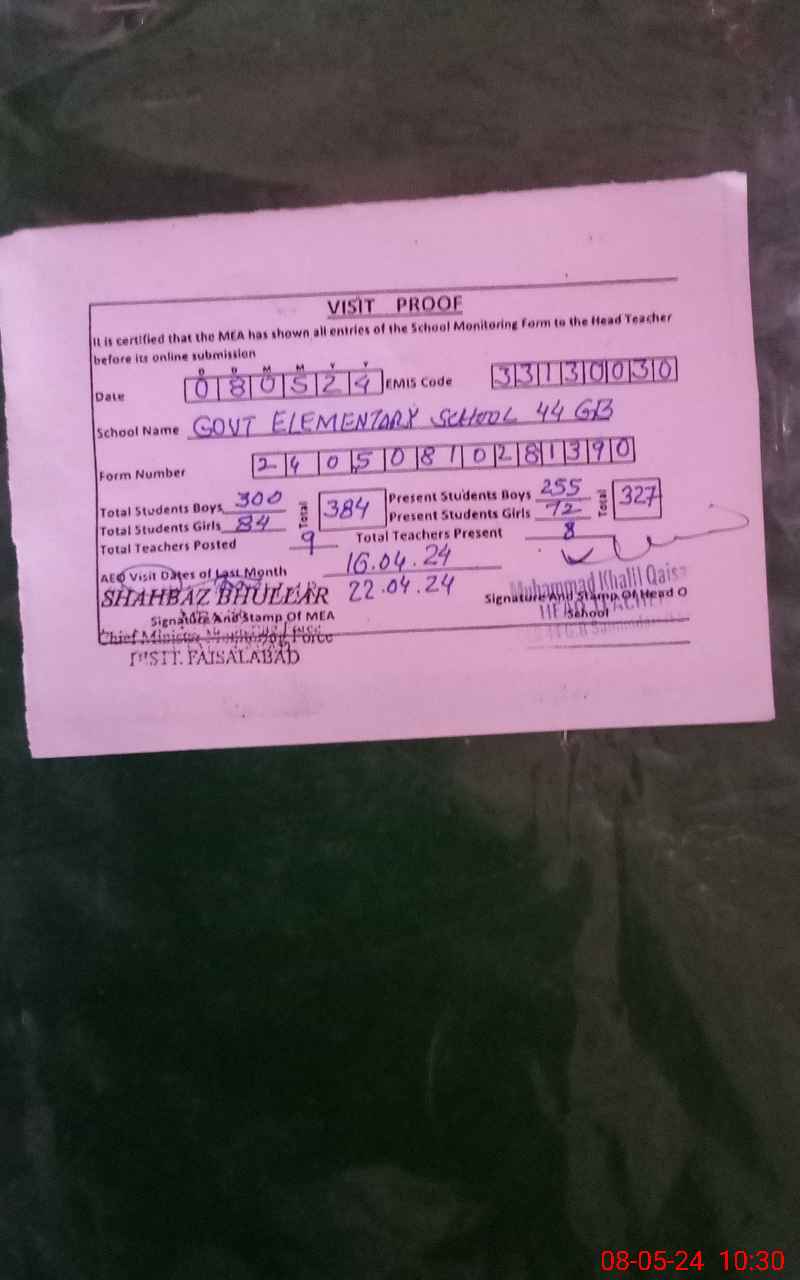 VISIT PROOF
It is certified that the MEA has shown all entries of the School Monitoring Form to the Head Teacher
before its online submission
D D M M Y Y
Date 080524 EMIS Code 33130030
School Name GOVT ELEMENTARY SCHOOL 44 GB
Form Number 24050810281390
Total Students Boys 300 Total 384 Present Students Boys 255 Total 327
Total Students Girls 84 Present Students Girls 72
Total Teachers Posted 9 Total Teachers Present 8
AEO Visit Dates of Last Month 16.04.24
22.04.24
SHAHBAZ BHULLAR
Signature And Stamp Of MEA
Chief Minister Monitoring Force
DISTT. FAISALABAD
Muhammad Khalil Qaisa
Signature And Stamp Of Head O
School
08-05-24 10:30